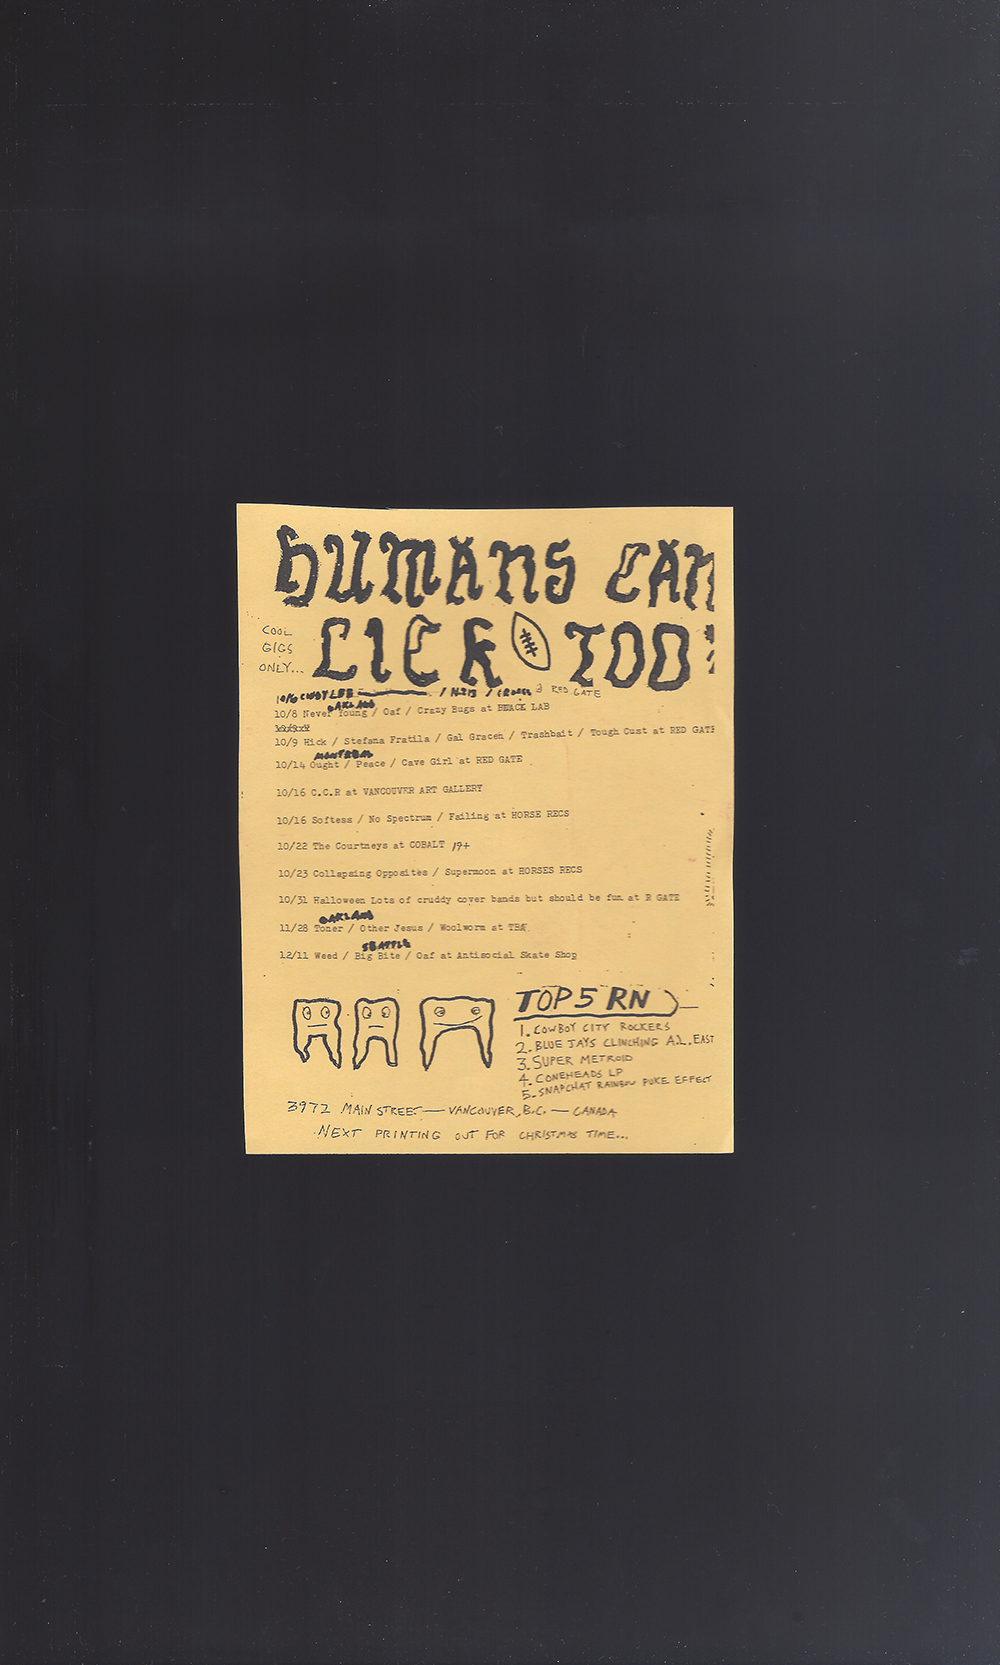 HUMANS CAN
LICK TOO
COOL
GIGS
ONLY...
10/6 CINDY LEE / N.213 / @ RED GATE
OAKLAND
10/8 Never Young / Oaf / Crazy Bugs at BLACK LAB
10/9 Hick / Stefana Fratila / Gal Gracen / Trashbait / Tough Cust at RED GATE
MONTREAL
10/14 Ought / Peace / Cave Girl at RED GATE
10/16 C.C.R at VANCOUVER ART GALLERY
10/16 Softess / No Spectrum / Failing at HORSE RECS
10/22 The Courtneys at COBALT 19+
10/23 Collapsing Opposites / Supermoon at HORSES RECS
10/31 Halloween Lots of cruddy cover bands but should be fun at R GATE
OAKLAND
11/28 Toner / Other Jesus / Woolworm at TBA
SEATTLE
12/11 Weed / Big Bite / Oaf at Antisocial Skate Shop
TOP 5 RN
1. COWBOY CITY ROCKERS
2. BLUE JAYS CLINCHING A.L. EAST
3. SUPER METROID
4. CONEHEADS LP
5. SNAPCHAT RAINBOW PUKE EFFECT
3972 MAIN STREET — VANCOUVER, B.C. — CANADA
NEXT PRINTING OUT FOR CHRISTMAS TIME...